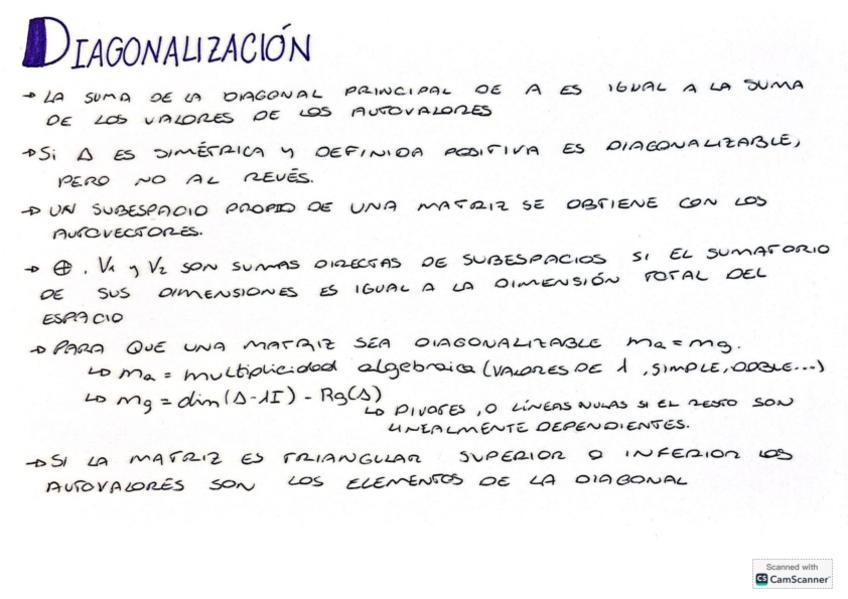 DIAGONALIZACIÓN
→ LA SUMA DE LA DIAGONAL PRINCIPAL DE A ES IGUAL A LA SUMA
DE LOS VALORES DE LOS AUTOVALORES
→ Si A ES SIMÉTRICA Y DEFINIDA POSITIVA ES DIAGONALIZABLE,
PERO NO AL REVÉS.
→ UN SUBESPACIO PROPIO DE UNA MATRIZ SE OBTIENE CON LOS
AUTOVECTORES.
→ ⊕. V1 y V2 SON SUMAS DIRECTAS DE SUBESPACIOS SI EL SUMATORIO
DE SUS DIMENSIONES ES IGUAL A LA DIMENSIÓN TOTAL DEL
ESPACIO
→ PARA QUE UNA MATRIZ SEA DIAGONALIZABLE ma = mg.
↳ ma = multiplicidad algebraica (VALORES DE λ, SIMPLE, DOBLE...)
↳ mg = dim(A-λI) - Rg(A)
↳ PIVOTES, O LÍNEAS NULAS SI EL RESTO SON
LINEALMENTE DEPENDIENTES.
→ SI LA MATRIZ ES TRIANGULAR SUPERIOR O INFERIOR LOS
AUTOVALORES SON LOS ELEMENTOS DE LA DIAGONAL
Scanned with
CS CamScanner